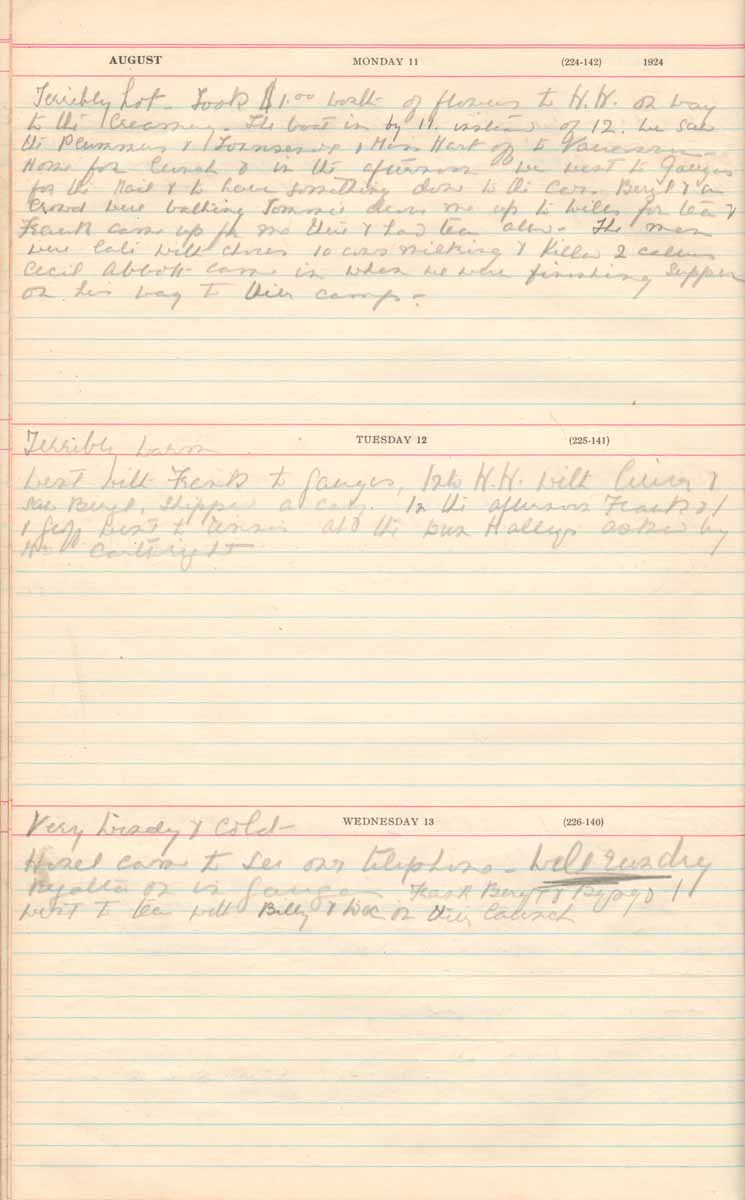 AUGUST MONDAY 11 (224-142) 1924
Terribly hot - Took $1.00 worth of flowers to H.H. on way
to the Creamery. The boat in by 11. instead of 12. We saw
the Plummers & & Miss Hart off to Vancouver -
Home for lunch & in the afternoon we went to Ganges
for the Mail & to have something done to the car. Beryl & a
crowd were bathing Tommie drove me up to Wills for tea &
Frank came up for me there & had tea also - The men
were late with chores 10 cows milking & killed 2 calves
Cecil Abbott came in when we were finishing supper
on his way to their camp -
TUESDAY 12 (225-141)
Terribly warm
went with Frank to Ganges, into H.H. with &
saw Beryl, shipped a calf. In the afternoon Frank & I
& Geoff went to tennis at the asked by
Cartwright
WEDNESDAY 13 (226-140)
Very windy & cold -
Hazel came to see our telephone -
Regatta on in Ganges Frank Beryl & & I
went to tea with Billy & Doc on their launch